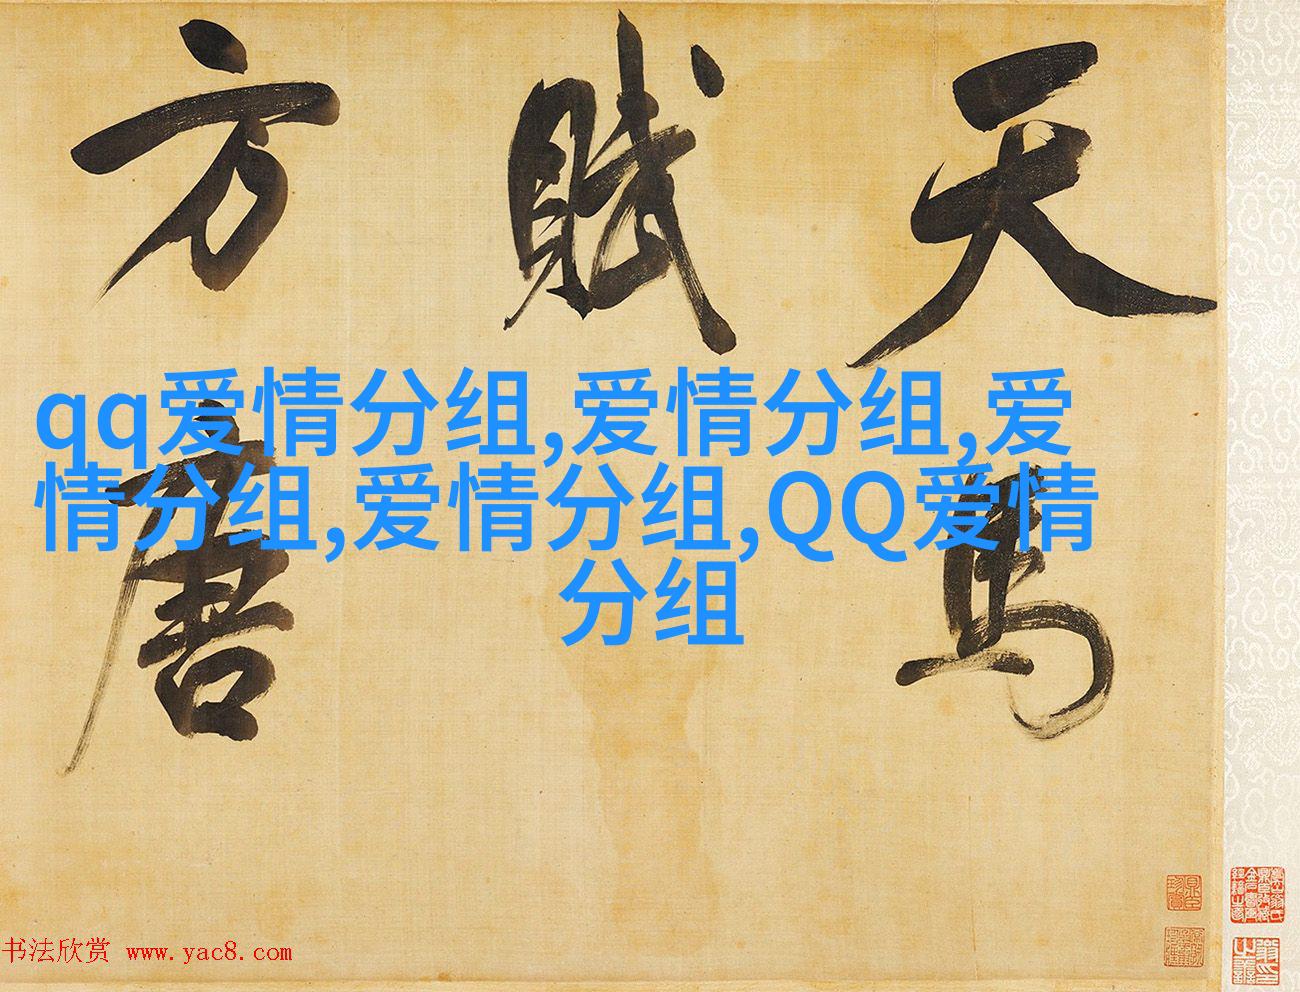 天馬
賦
方唐
qq爱情分组,爱情分组,爱
情分组,爱情分组,QQ爱情
分组
书法欣赏 www.yac8.com